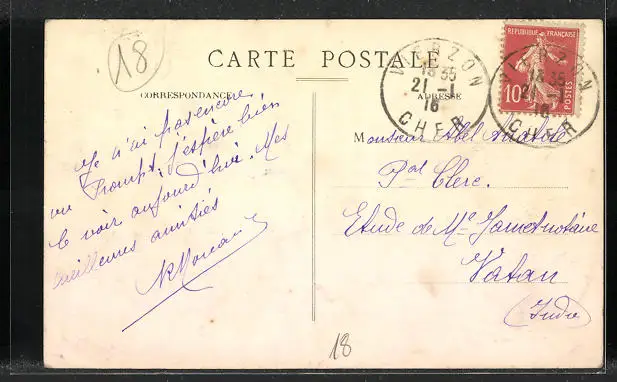 18
CARTE POSTALE
CORRESPONDANCE
ADRESSE
VIERZON
18 35
21 -1
16
CHER
REPUBLIQUE FRANÇAISE
10
POSTES
VIERZON
18 35
21 -1
16
CHER
Je n'ai pas encore
vu Prompt. J'espère bien
le voir aujourd'hui. Mes
meilleures amitiés
Monsieur Abel
Pal Clerc.
Etude de Me Jamet notaire
Vatan
(Indre)
18